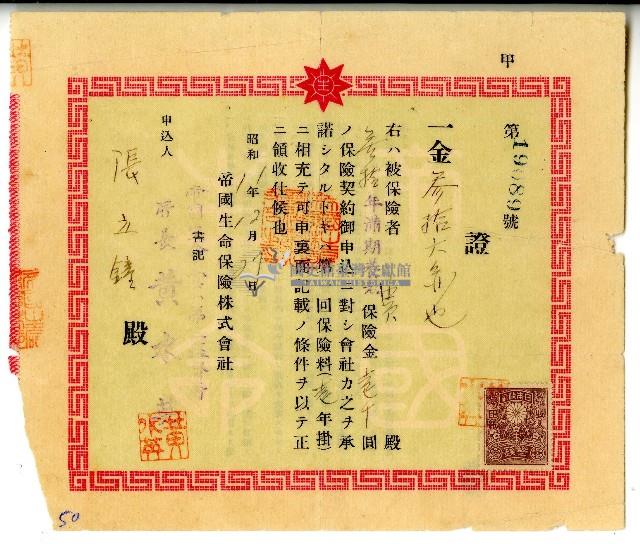 甲
第19089號
證
一金參拾大弁也
右ハ被保險者 殿
參拾年滿期 保險金壹千圓
ノ保險契約御申込ニ對シ會社カ之ヲ承
諾シタルトキハ第一回保險料(壱年掛)
ニ相充テ可申裏面記載ノ條件ヲ以テ正
ニ領收仕候也
昭和11年12月 日
帝國生命保險株式會社
書記
所長 黃水
申込人
張立鐘 殿
國史館臺灣文獻館
TAIWAN HISTORICA
50